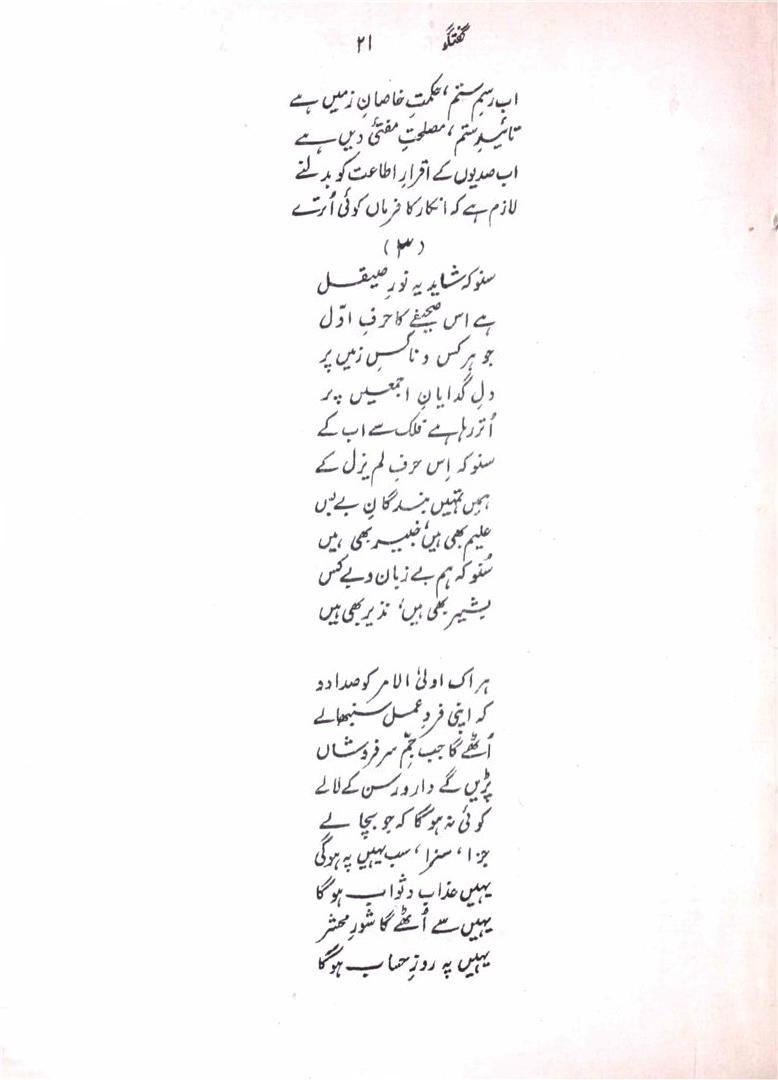 گفتگو ۲۱
اب رسمِ ستم، حکمتِ خاصانِ زمیں ہے
تائیدِ ستم، مصلحتِ مفتیٔ دیں ہے
اب صدیوں کے اقرارِ اطاعت کو بدلنے
لازم ہے کہ انکار کا فرماں کوئی اُترے
(۳)
سنو کہ شاید یہ نورِ صیقل
ہے اس صحیفے کا حرفِ اوّل
جو ہر کس و ناکسِ زمیں پر
دلِ گدایانِ اجمعیں پر
اُتر رہا ہے فلک سے اب کے
سنو کہ اِس حرفِ لم یزل کے
ہمیں تمہیں بندگانِ بے بس
علیم بھی ہیں، خبیر بھی ہیں
سُنو کہ ہم بے زبان و بے کس
بشیر بھی ہیں، نذیر بھی ہیں
ہر اک اولیٰ الامر کو صدا دو
کہ اپنی فردِ عمل سنبھالے
اُٹھے گا جب جَمِّ سرفروشاں
پڑیں گے دار و رسن کے لالے
کوئی نہ ہوگا کہ جو بچا لے
جزا، سزا، سب یہیں پہ ہوگی
یہیں عذاب و ثواب ہوگا
یہیں سے اُٹھے گا شورِ محشر
یہیں پہ روزِ حساب ہوگا